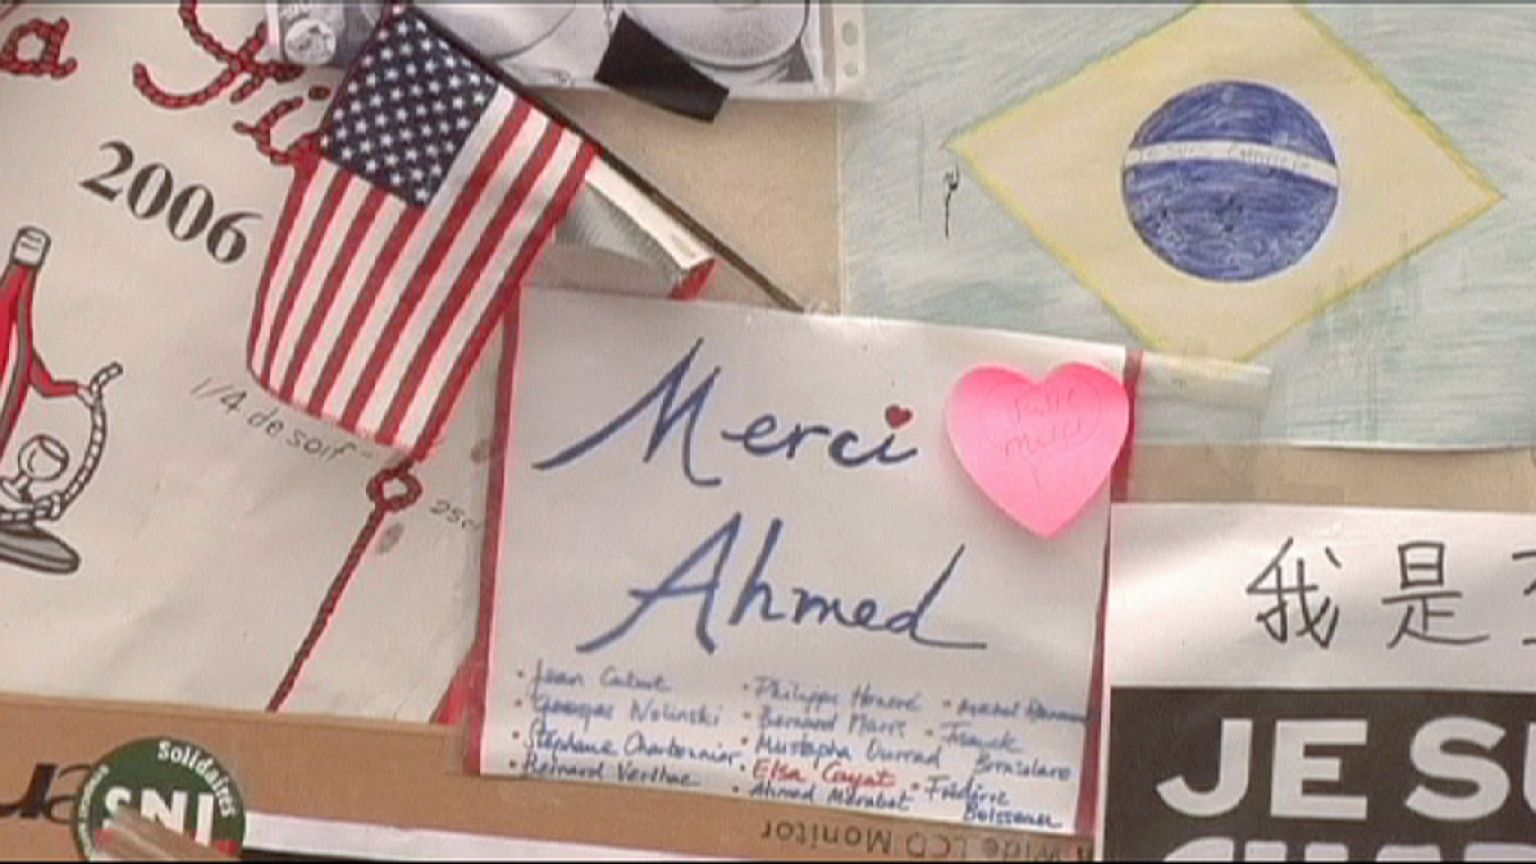 2006
1/4 de soif
25cl
Merci
Ahmed
merci
我是
JE SU
• Jean Cabut
• Georges Wolinski
• Stéphane Charbonnier
• Bernard Verlhac
• Philippe Honoré
• Bernard Maris
• Mustapha Ourrad
• Elsa Cayat
• Ahmed Merabet
• Franck
Brinsolaro
• Frédéric
Boisseau
Solidaires
SNJ
LCD Monitor